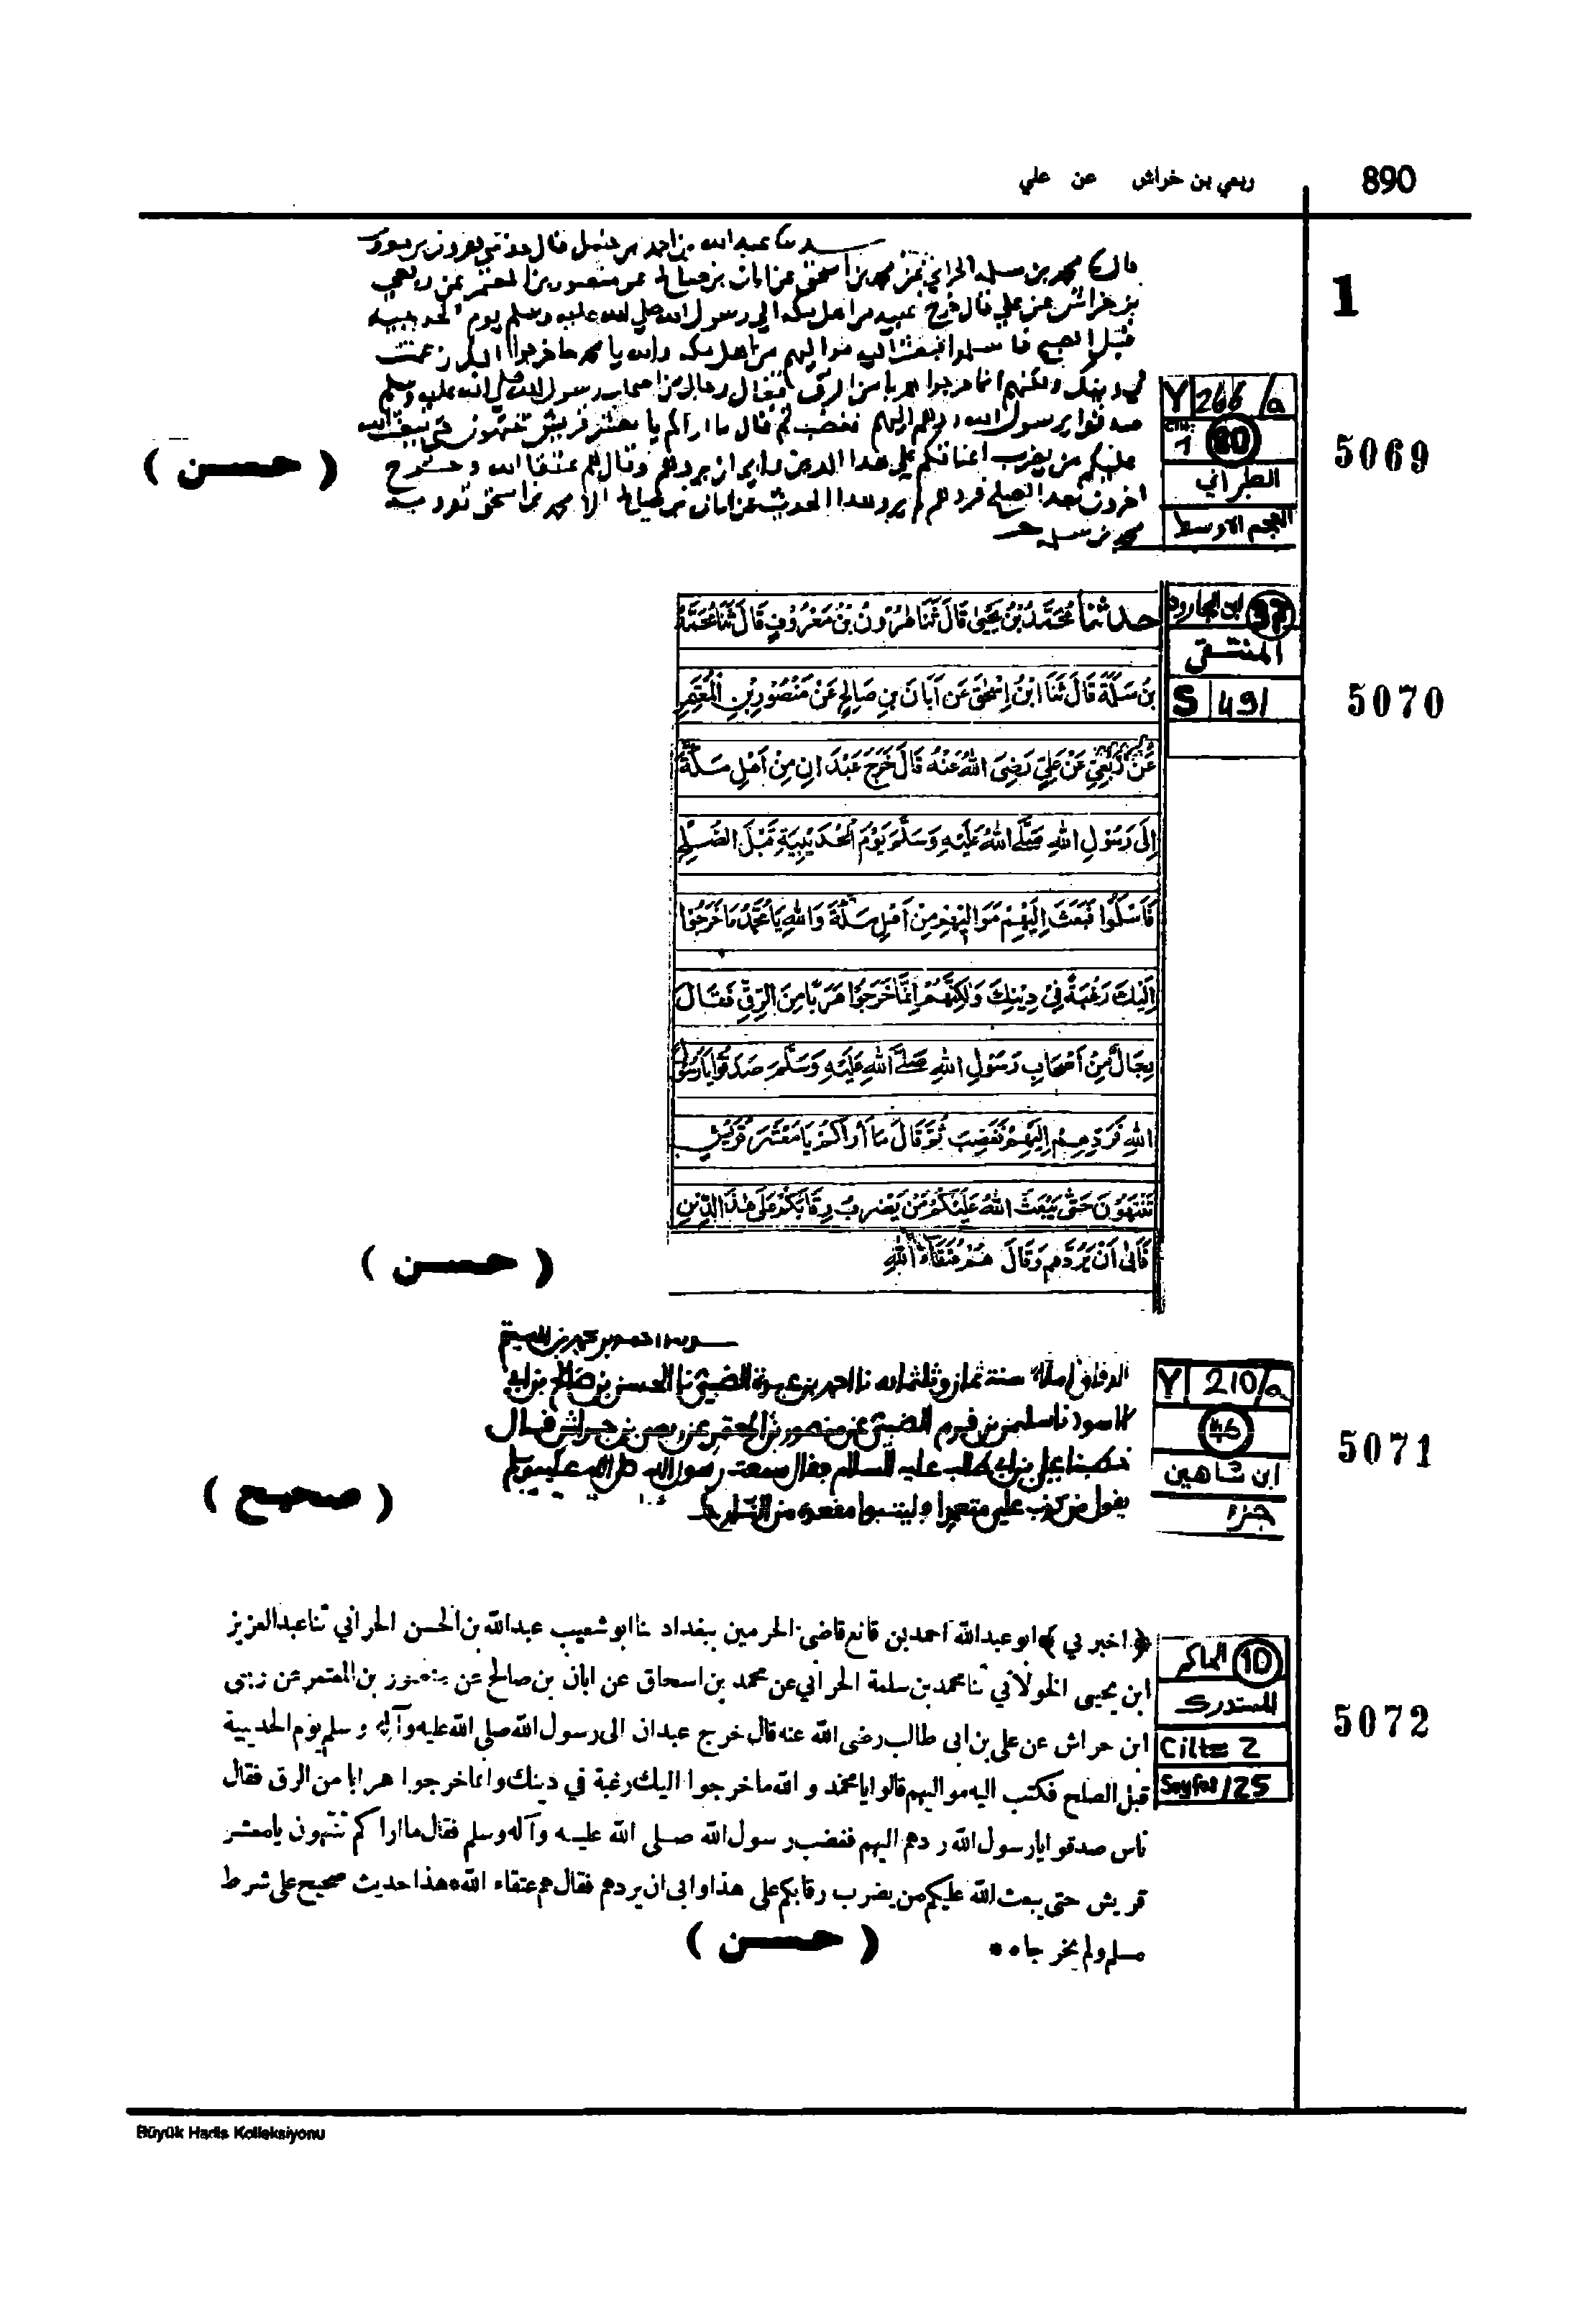 890
ربعي بن خراش عن علي
1
حدثنا عبد الله بن احمد بن حنبل قال حدثني
قال نا محمد بن سلمه الحراني عن محمد بن اسحق عن ابان بن صالح عن منصور بن المعتمر عن ربعي
بن خراش عن علي قال خرج عبيد من اهل مكه الي رسول الله صلي الله عليه وسلم يوم الحديبيه
قبل الصلح فاسلموا فبعث اليه مواليهم من اهل مكه والله يا محمد ما خرجوا اليك
في دينك ولكنهم انما خرجوا هربا من الرق فقال رجال من اصحاب رسول الله صلي الله عليه وسلم
صدقوا يرسول الله ردهم اليهم فغضب ثم قال ما اراكم يا معشر قريش تنتهون حتي يبعث الله
عليكم من يضرب اعناقكم علي هذا الدين وابي ان يردهم وقال هم عتقا الله وخرج
اخرون بعد الصلح فردهم لم يرو هذا الحديث عن ابان بن صالح الا محمد بن اسحق تفرد به
محمد بن سلمه
( حسن )
Y 266/a
Cilt: 1 80
الطبراني
المعجم الاوسط
5069
حدثنا مُحَمَّدُ بْنُ يَحْيَىٰ قَالَ ثَنَا هٰرُوْنُ بْنُ مَعْرُوْفٍ قَالَ ثَنَا مُحَمَّدُ
بْنُ سَلَمَةَ قَالَ ثَنَا ابْنُ إِسْحٰقَ عَنْ أَبَانَ بْنِ صَالِحٍ عَنْ مَنْصُوْرِ بْنِ الْمُعْتَمِرِ
عَنْ رِبْعِيٍّ عَنْ عَلِيٍّ رَضِيَ اللهُ عَنْهُ قَالَ خَرَجَ عَبْدَانِ مِنْ أَهْلِ مَكَّةَ
إِلَى رَسُوْلِ اللهِ صَلَّى اللهُ عَلَيْهِ وَسَلَّمَ يَوْمَ الْحُدَيْبِيَةِ قَبْلَ الصُّلْحِ
فَأَسْلَمُوْا فَبَعَثَ إِلَيْهِمْ مَوَالِيْهِمْ مِنْ أَهْلِ مَكَّةَ وَاللهِ يَا مُحَمَّدُ مَا خَرَجُوْا
إِلَيْكَ رَغْبَةً فِيْ دِيْنِكَ وَلٰكِنَّهُمْ إِنَّمَا خَرَجُوْا هَرَبًا مِنَ الرِّقِّ فَقَالَ
رِجَالٌ مِنْ أَصْحَابِ رَسُوْلِ اللهِ صَلَّى اللهُ عَلَيْهِ وَسَلَّمَ صَدَقُوْا يَا رَسُوْلَ
اللهِ فَرُدَّهُمْ إِلَيْهِمْ فَغَضِبَ ثُمَّ قَالَ مَا أَرَاكُمْ يَا مَعْشَرَ قُرَيْشٍ
تَنْتَهُوْنَ حَتّٰى يَبْعَثَ اللهُ عَلَيْكُمْ مَنْ يَضْرِبُ رِقَابَكُمْ عَلَى هٰذَا الدِّيْنِ
فَأَبَى أَنْ يَرُدَّهُمْ وَقَالَ هُمْ عُتَقَاءُ اللهِ
( حسن )
ابن الجارود 37
المنتقى
S 491
5070
حدثنا احمد بن محمد بن الهيثم
الدقاق املاء سنة ثمان وثلثمايه نا احمد بن عبدة الضبي نا الحسن بن صالح بن ابي
الاسود نا سليمن بن قرم الضبي عن منصور بن المعتمر عن ربعي بن حراش قال
خطبنا علي بن ابي طالب عليه السلام فقال سمعت رسول الله صلى الله عليه وسلم
يقول من كذب علي متعمدا فليتبوا مقعده من النار
( صحيح )
Y 210/a
46
ابن شاهين
جزء
5071
﴿اخبرني﴾ ابو عبدالله احمد بن قانع قاضي الحرمين ببغداد ثنا ابو شعيب عبدالله بن الحسن الحراني ثنا عبدالعزيز
ابن يحيى الخولاني ثنا محمد بن سلمة الحراني عن محمد بن اسحاق عن ابان بن صالح عن منصور بن المعتمر عن ربعى
ابن حراش عن على بن ابى طالب رضى الله عنه قال خرج عبدان الى رسول الله صلى الله عليه وآله وسلم يوم الحديبية
قبل الصلح فكتب اليه مواليهم قالوا يا محمد و الله ما خرجوا اليك رغبة في دينك وانما خرجوا هرابا من الرق فقال
ناس صدقوا يا رسول الله ردهم اليهم فغضب رسول الله صلى الله عليه وآله وسلم فقال ما اراكم تنتهون يا معشر
قريش حتى يبعث الله عليكم من يضرب رقابكم على هذا وابى ان يردهم فقال هم عتقاء الله * هذا حديث صحيح على شرط
مسلم ولم يخرجاه *
( حسن )
الحاكم 10
المستدرك
Cilt= 2
Sayfa: 125
5072
Büyük Hadis Kolleksiyonu